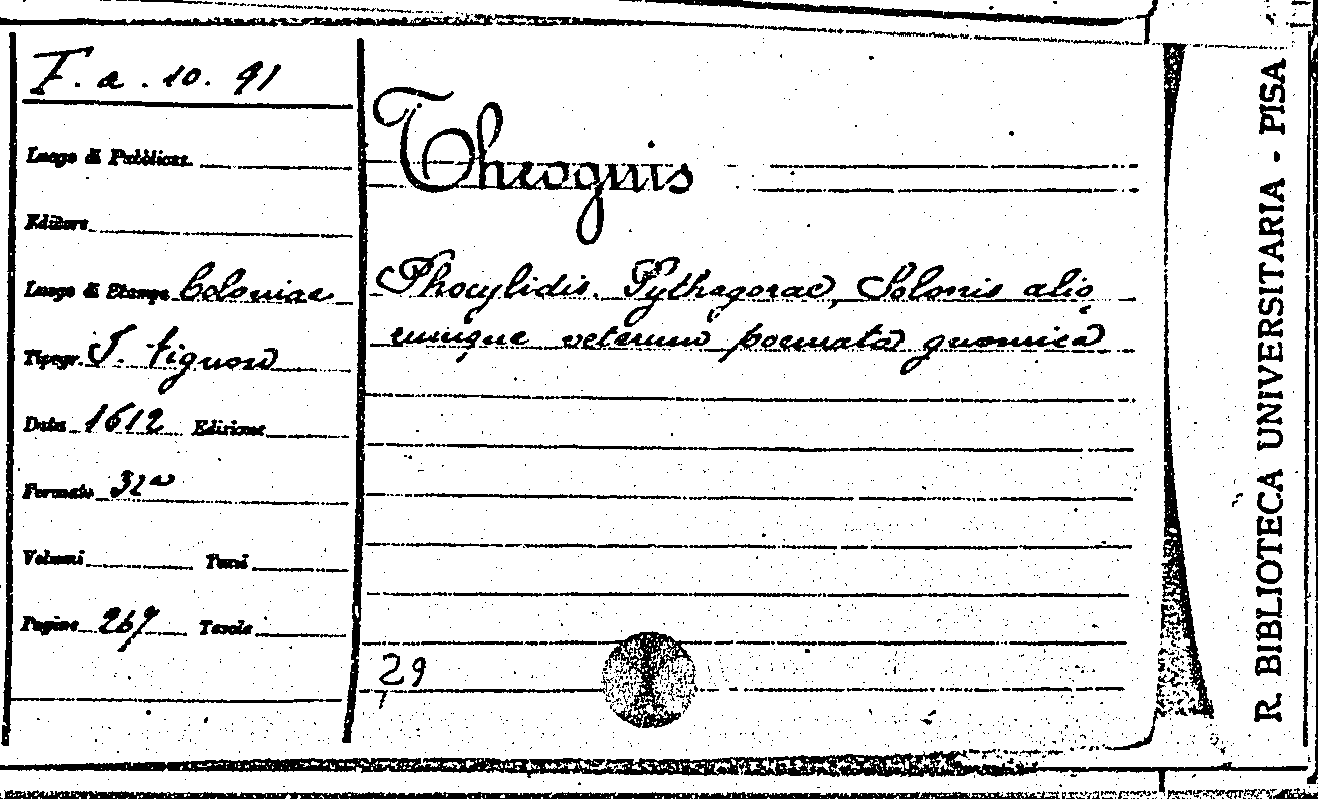 F. a. 10. 91
Luogo di Pubblicaz.
Editore
Luogo di Stampa Coloniae
Tipogr. J. Vignon
Data 1612 Edizione
Formato 32°
Volumi Tomi
Pagine 267 Tavole
Theognis
Phocylidis. Pythagorae, Solonis alio
rumque veterum poemata gnomica
29
R. BIBLIOTECA UNIVERSITARIA - PISA